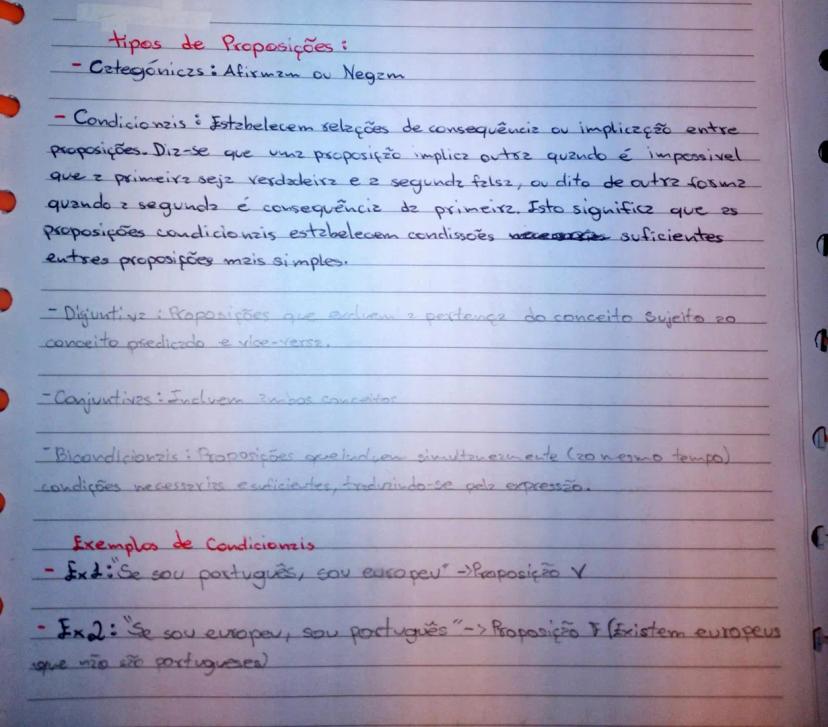 tipos de Proposições:
- Categóricas: Afirmam ou Negam
- Condicionais: Estabelecem relações de consequência ou implicação entre
proposições. Diz-se que uma proposição implica outra quando é impossivel
que a primeira seja verdadeira e a segunda falsa, ou dito de outra forma
quando a segunda é consequência da primeira. Isto significa que as
proposições condicionais estabelecem condissões suficientes
entres proposições mais simples.
- Dijuntiva: Proposições que excluem a pertença do conceito sujeito ao
conceito predicado e vice-versa.
- Conjuntivas: Incluem ambos conceitos
- Bicondicionais: Proposições que incluem simultaneamente (ao mesmo tempo)
condições necessarias e suficientes, traduzindo-se pela expressão.
Exemplos de Condicionais
- Ex1: "Se sou português, sou europeu" -> Proposição V
- Ex2: "Se sou europeu, sou português" -> Proposição F (Existem europeus
que não são portugueses)